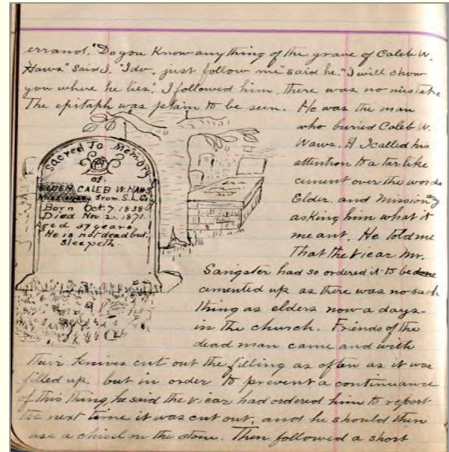 errand. "Do you know anything of the grave of Caleb W.
Haws" said I. "I do, just follow me" said he. "I will show
you where he lies." I followed him, there was no mistake
The epitaph was plain to be seen. He was the man
who buried Caleb W.
Haws. I called his
attention to a tar like
cement over the words
Elder and Missionary
asking him what it
meant. He told me
That the Vicar Mr.
Sangster had so ordered it to be done
cemented up as there was no such
thing as elders now a days
in the church. Friends of the
dead man came and with
their knives cut out the filling as often as it was
filled up. but in order to prevent a continuance
of this thing he said the vicar had ordered him to report
the next time it was cut out, and he should then
use a chisel on the stone. Then followed a short
Sacred To Memory
of
ELDER CALEB W. HAWS
Missionary from S.L.C.
Born Oct. 7. 1838
Died Nov 21. 1871.
Aged 37 years
He is not dead but
Sleepeth